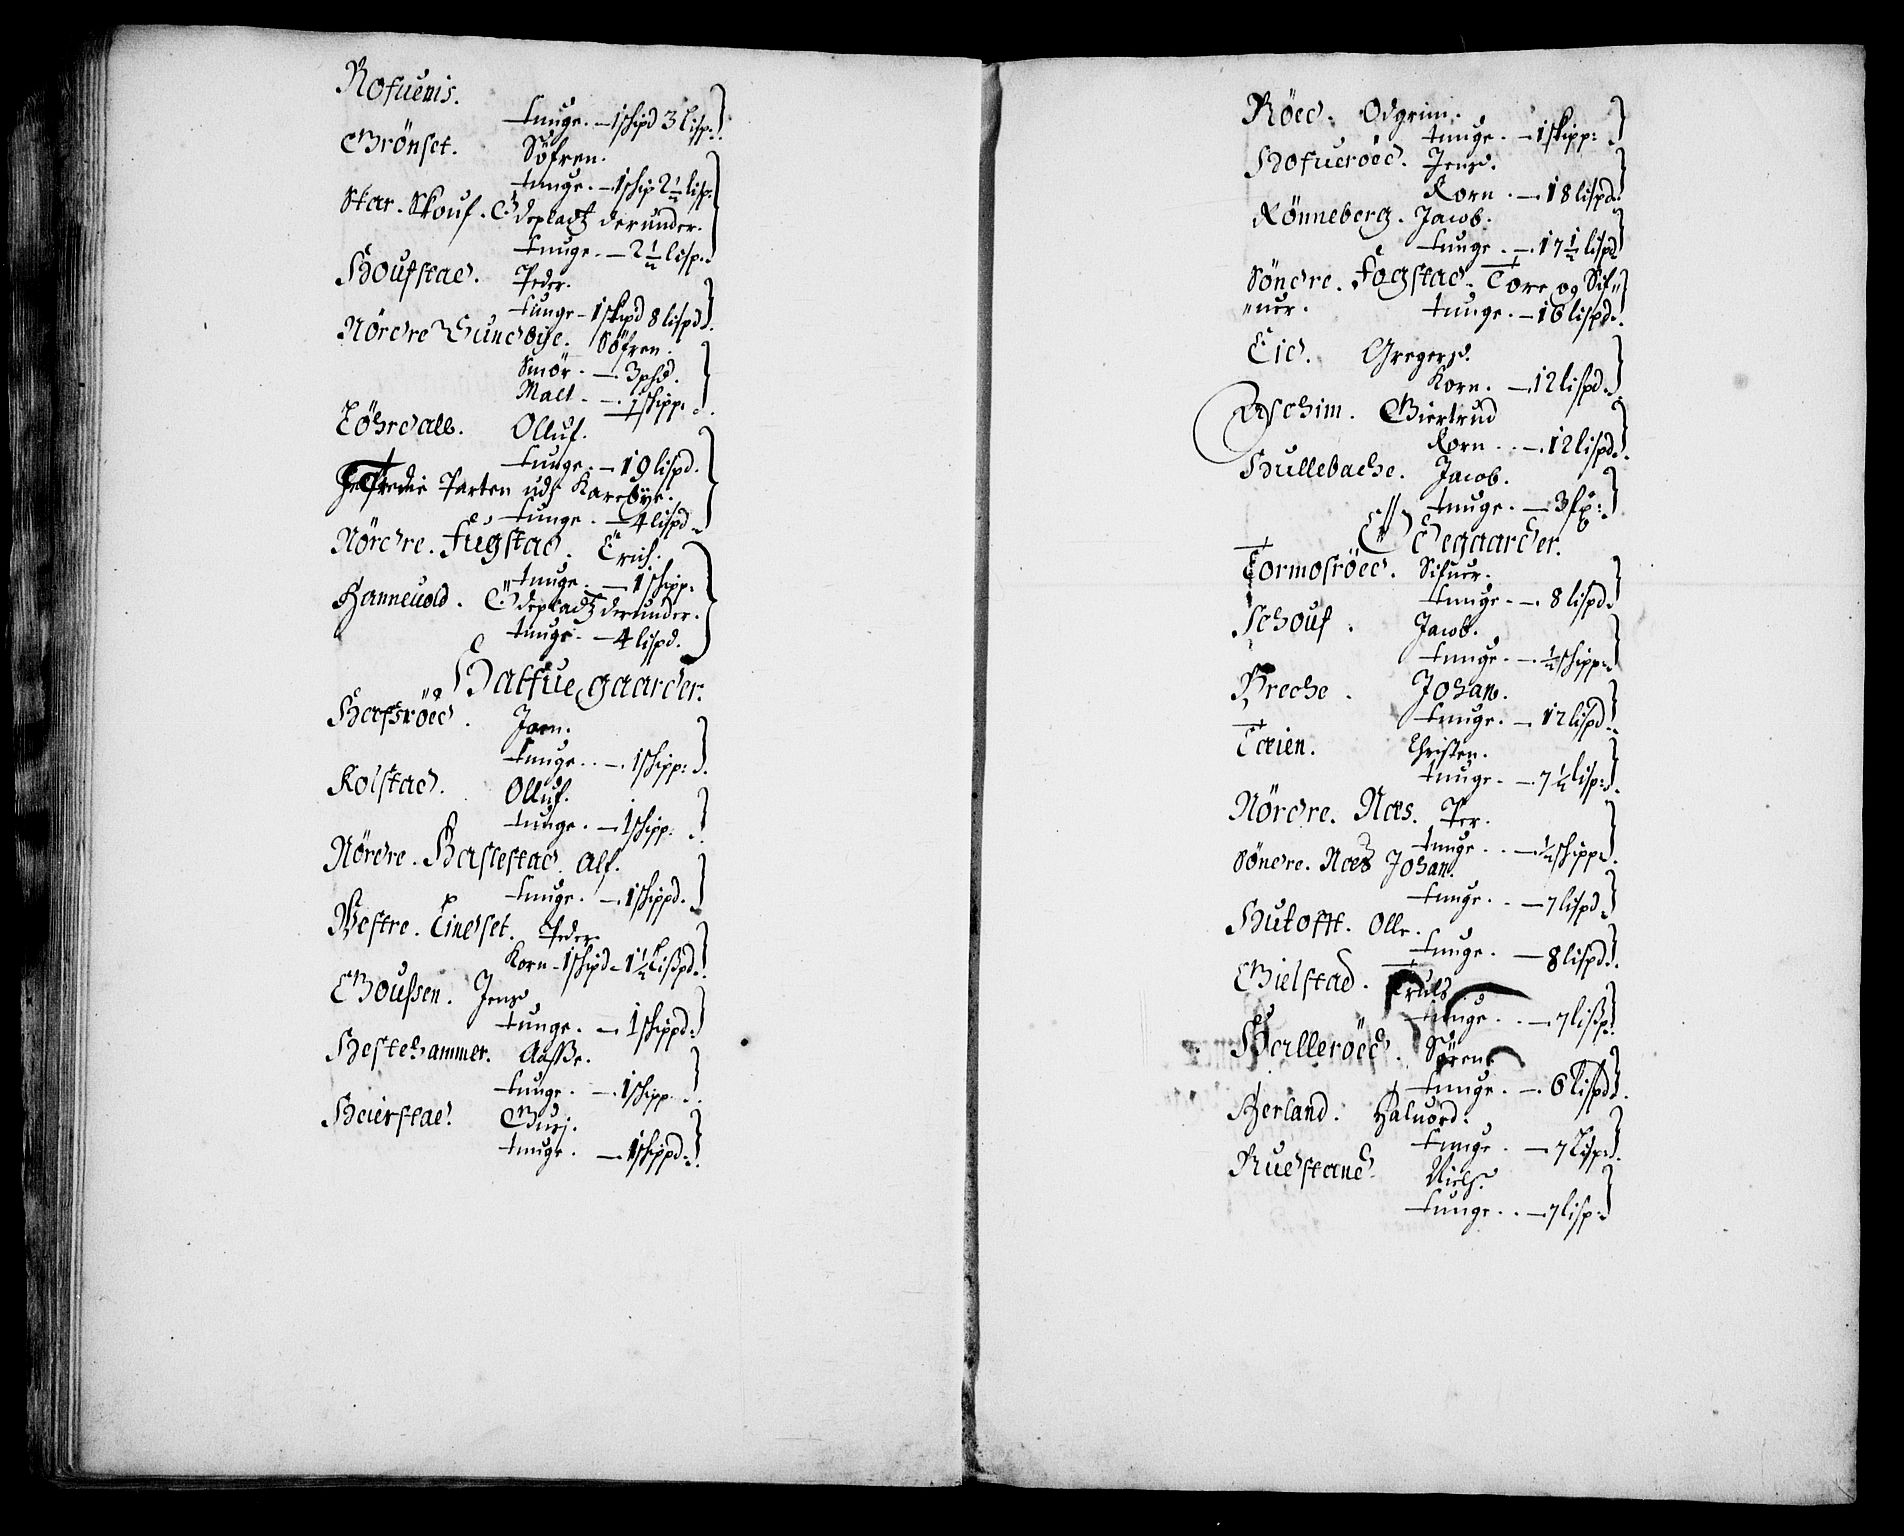 Rofuenis.
tunge. - 1 schipd 3 lisp:
Grönset. Söfren.
tunge. - 1 schip 2½ lisp:
Skar. Skouf. Ödepladtz derunder.
tunge. - 2½ lisp:
Houfstad. Peder.
tunge - 1 skipd 8 lispd.
Nördre Sundbye. Söfren.
Smör. - 3 pd.
Malt. - 1 skipp:
Löhrdall. Olluf.
tunge. - 19 lispd.
Parten udj Karebye.
tunge. - 4 lispd
Nördre. Fugstad. Erich.
tunge. - 1 schipp:
Hanneuold. Ödepladtz derunder.
tunge. - 4 lispd.
Halfue gaarder.
Hafsröed. Joen.
tunge. - 1 schipp:
Kolstad. Olluf.
tunge. - 1 schipp:
Nördre. Haslestad. Alf.
tunge. - 1 schippd.
Westre. Lindset. Peder
Korn - 1 schipd - 1½ Lißpd.
Goußen. Jens
tunge. - 1 schippd:
Hestehammer. Aaße.
tunge. - 1 schipp.
Heierstad. Guri.
tunge. - 1 schippd:
Röed. Odgrim.
tunge. - 1 skipp:
Hofueröed. Jens.
Korn. - 18 lispd.
Rönneberg. Jacob.
tunge. - 17½ lispd
Söndre. Fogstad. Tore og Sif"
"uer. tunge. - 16 lispd.
Eid. Gregers.
Korn. - 12 lispd.
Aschim. Giertrud
Korn. - 12 lispd.
Hullebache. Jacob.
tunge. - 3 fx:
Ödegaarder.
Tormosröed. Sifuer.
tunge. - 8 lispd.
Schouf. Jacob.
tunge. - ½ schipp:
Breche. Johan.
tunge. - 12 lispd.
Taien. Christen.
tunge. - 7½ lisp:
Nördre. Næs. Per.
tunge. - ½ schipp.
Söndre. Næs Johan.
tunge. - 7 lispd
Hutofft. Olle.
tunge. - 8 lispd.
Gielstad. Truls
tunge. - 7 lißp:
Halleröed. Sören
tunge. - 6 lispd.
Berland. Haluord.
tunge. - 7 Lisp:
Rudstand. Niels.
tunge. - 7 lisp: